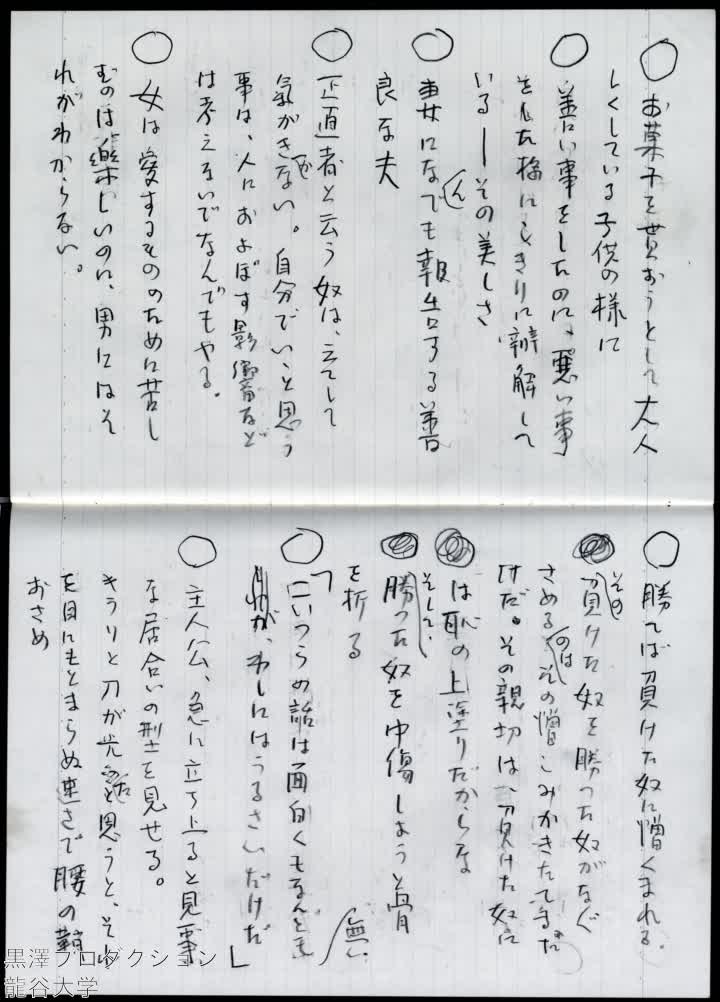 お菓子を貰おうとして大人
しくしている子供の様に
善い事をしたのに、悪い事
をした様にしきりに辯解して
いる—その美しさ
妻になんでも報告する善
良な夫
正直者と云う奴は、えてして
気がきかない。自分でいいと思う
事は、人におよぼす影響など
は考えないでなんでもやる。
女は愛するもののために苦し
むのは楽しいのに、男にはそ
れがわからない。
勝てば負けた奴に憎くまれる。
その負けた奴を勝った奴がなぐ
さめるのは、その憎しみをかきたてる
だけだ。その親切は、負けた奴に
は恥の上塗りだからな
そして、勝った奴を中傷しようと骨
を折る
「こいつらの話は面白くもなんとも無い
が、わしにはうるさいだけだ」
主人公、急に立ち上ると見事
な居合いの型を見せる。
キラリと刀が光ったと思うと、そ
を目にもとまらぬ速さで腰の鞘に
おさめ
黒澤プロダクション
龍谷大学